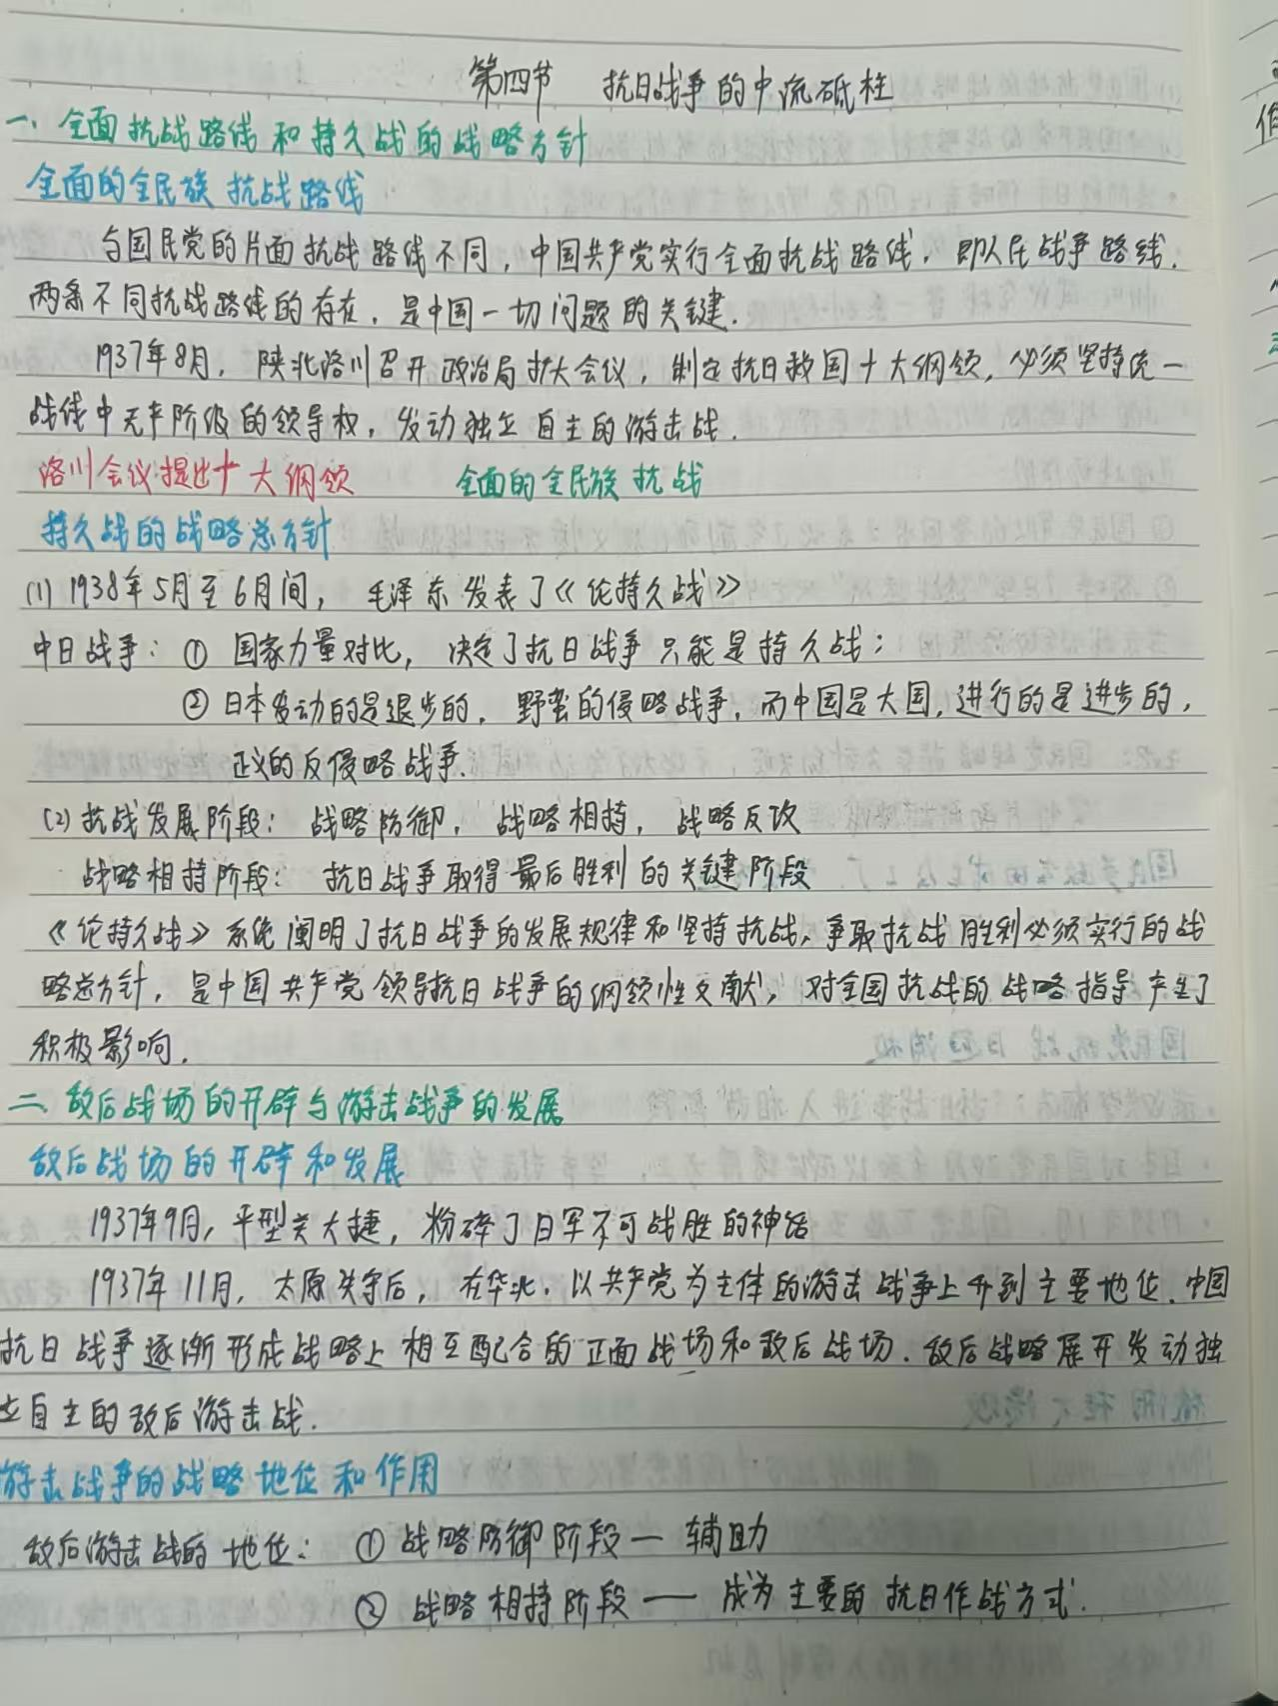 第四节 抗日战争的中流砥柱
一. 全面抗战路线和持久战的战略方针
全面的全民族抗战路线
与国民党的片面抗战路线不同，中国共产党实行全面抗战路线，即人民战争路线.
两条不同抗战路线的存在，是中国一切问题的关键.
1937年8月，陕北洛川召开政治局扩大会议，制定抗日救国十大纲领，必须坚持统一
战线中无产阶级的领导权，发动独立自主的游击战.
洛川会议:提出十大纲领 全面的全民族抗战
持久战的战略总方针
(1) 1938年5月至6月间，毛泽东发表了《论持久战》
中日战争：① 国家力量对比，决定了抗日战争只能是持久战；
② 日本发动的是退步的，野蛮的侵略战争，而中国是大国，进行的是进步的，
正义的反侵略战争.
(2) 抗战发展阶段：战略防御，战略相持，战略反攻
战略相持阶段：抗日战争取得最后胜利的关键阶段
《论持久战》系统阐明了抗日战争的发展规律和坚持抗战、争取抗战胜利必须实行的战
略总方针，是中国共产党领导抗日战争的纲领性文献，对全国抗战的战略指导产生了
积极影响.
二. 敌后战场的开辟与游击战争的发展
敌后战场的开辟和发展
1937年9月，平型关大捷，粉碎了日军不可战胜的神话
1937年11月，太原失守后，在华北，以共产党为主体的游击战争上升到主要地位.中国
抗日战争逐渐形成战略上相互配合的正面战场和敌后战场.敌后战略展开发动独
立自主的敌后游击战.
游击战争的战略地位和作用
敌后游击战的地位：① 战略防御阶段 — 辅助
② 战略相持阶段 —— 成为主要的抗日作战方式.